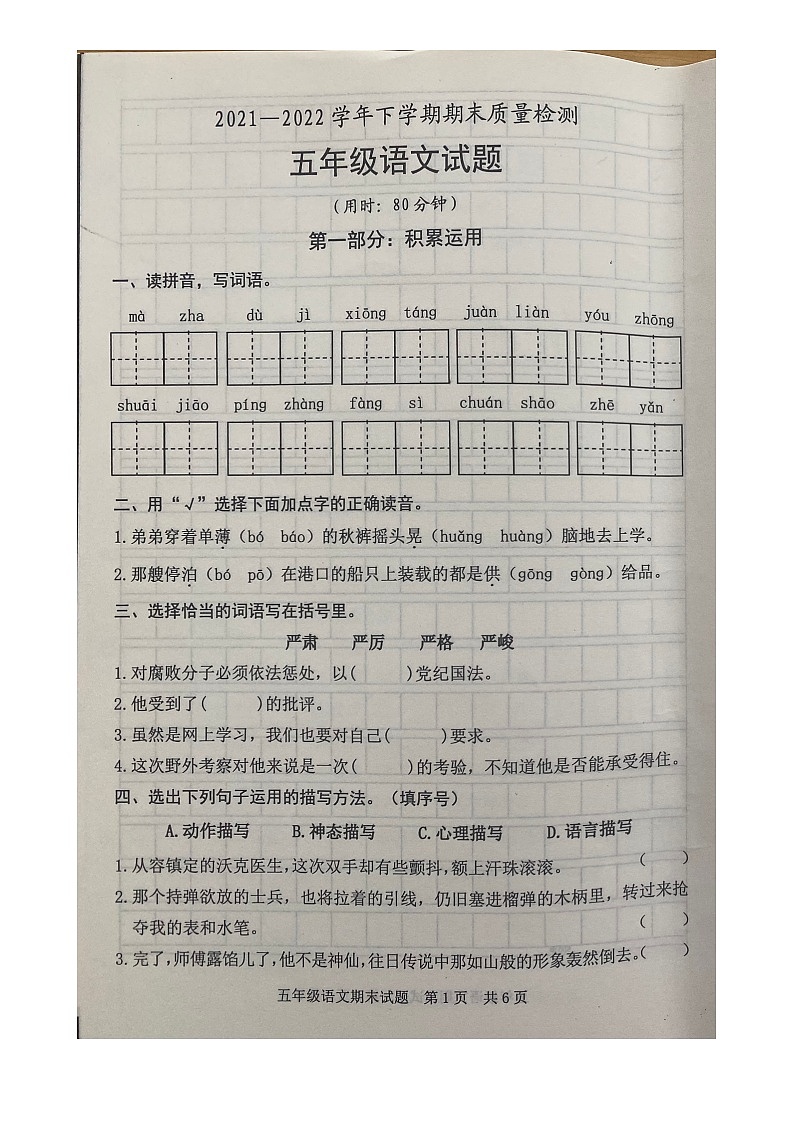 2021—2022学年下学期期末质量检测
五年级语文试题
(用时：80分钟)
第一部分：积累运用
一、读拼音，写词语。
mà zha dù jì xiōng táng juàn liàn yóu zhōng
shuāi jiāo píng zhàng fàng sì chuán shāo zhē yǎn
二、用“√”选择下面加点字的正确读音。
1.弟弟穿着单薄（bó báo）的秋裤摇头晃（huǎng huàng）脑地去上学。
2.那艘停泊（bó pō）在港口的船只上装载的都是供（gōng gòng）给品。
三、选择恰当的词语写在括号里。
严肃 严厉 严格 严峻
1.对腐败分子必须依法惩处，以( )党纪国法。
2.他受到了( )的批评。
3.虽然是网上学习，我们也要对自己( )要求。
4.这次野外考察对他来说是一次( )的考验，不知道他是否能承受得住。
四、选出下列句子运用的描写方法。（填序号）
A.动作描写 B.神态描写 C.心理描写 D.语言描写
1.从容镇定的沃克医生，这次双手却有些颤抖，额上汗珠滚滚。 （ ）
2.那个持弹欲放的士兵，也将拉着的引线，仍旧塞进榴弹的木柄里，转过来抢
夺我的表和水笔。 （ ）
3.完了，师傅露馅儿了，他不是神仙，往日传说中那如山般的形象轰然倒去。（ ）
五年级语文期末试题 第1页 共6页